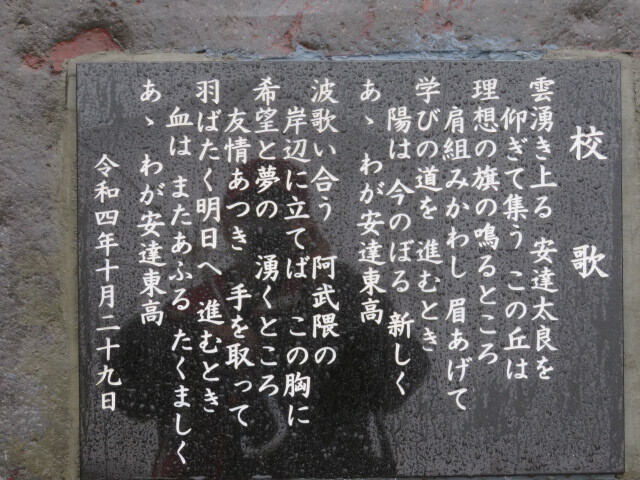 校歌
雲湧き上る 安達太良を
仰ぎて集う この丘は
理想の旗の鳴るところ
肩組みかわし 眉あげて
学びの道を 進むとき
陽は 今のぼる 新しく
あゝ わが安達東高
波歌い合う 阿武隈の
岸辺に立てば この胸に
希望と夢の 湧くところ
友情あつき 手を取って
羽ばたく明日へ 進むとき
血は またあふる たくましく
あゝ わが安達東高
令和四年十月二十九日